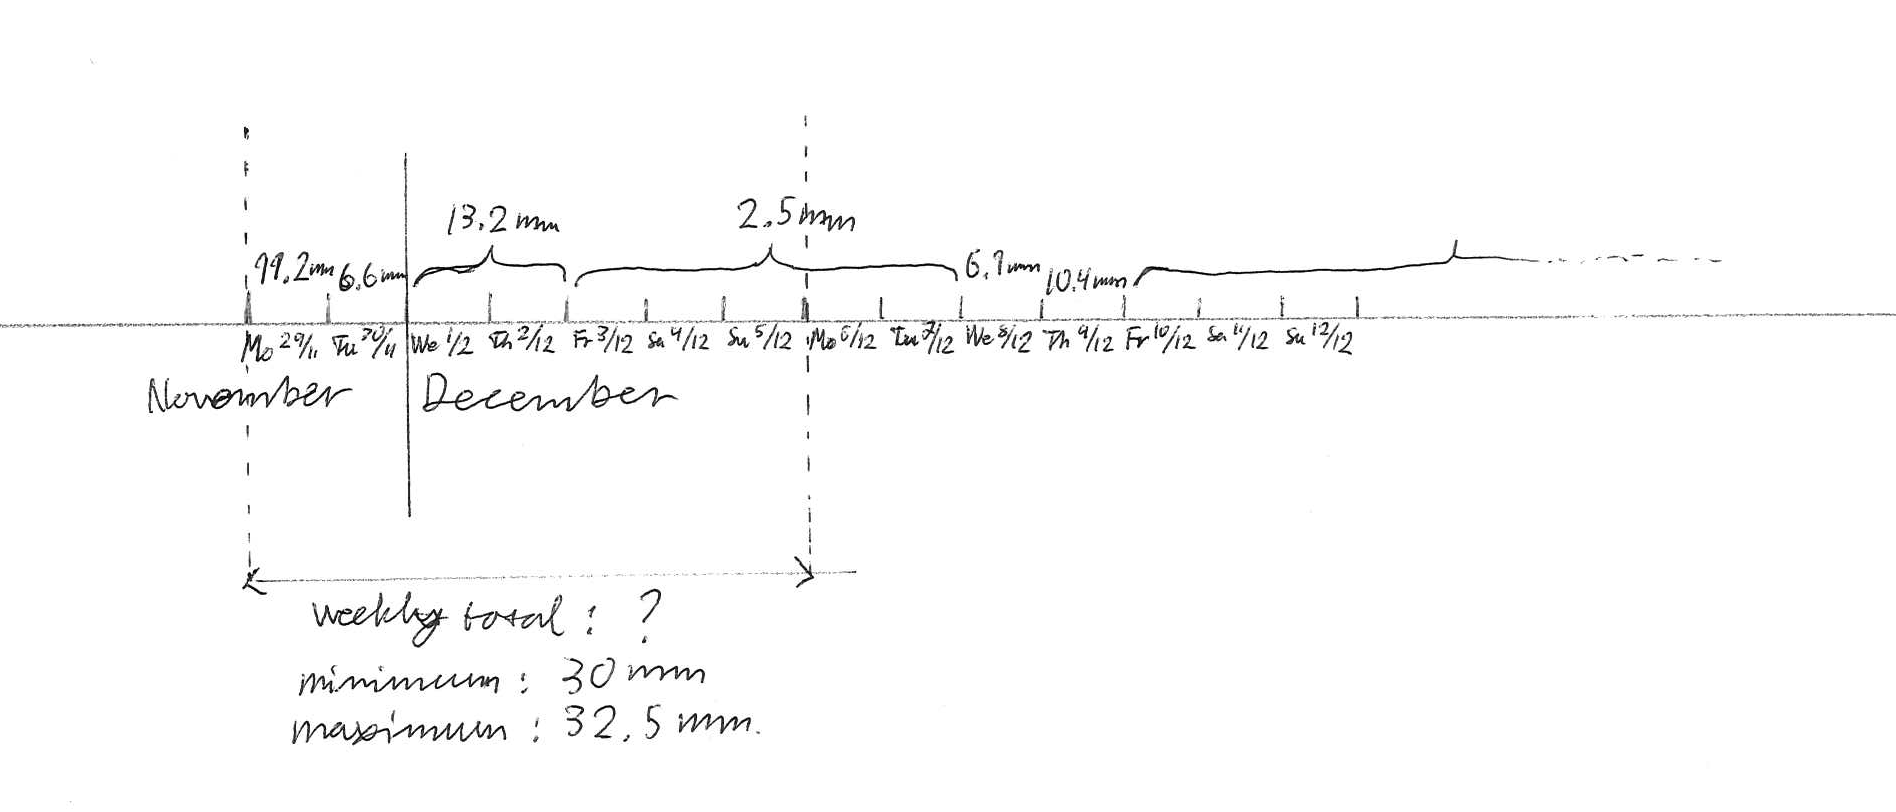 13.2mm 2.5mm
11.2mm 6.6mm 6.1mm 10.4mm
Mo 29/11 Tu 30/11 We 1/2 Th 2/12 Fr 3/12 Sa 4/12 Su 5/12 Mo 6/12 Tu 7/12 We 8/12 Th 9/12 Fr 10/12 Sa 11/12 Su 12/12
November December
weekly total : ?
minimum : 30 mm
maximum : 32,5 mm.